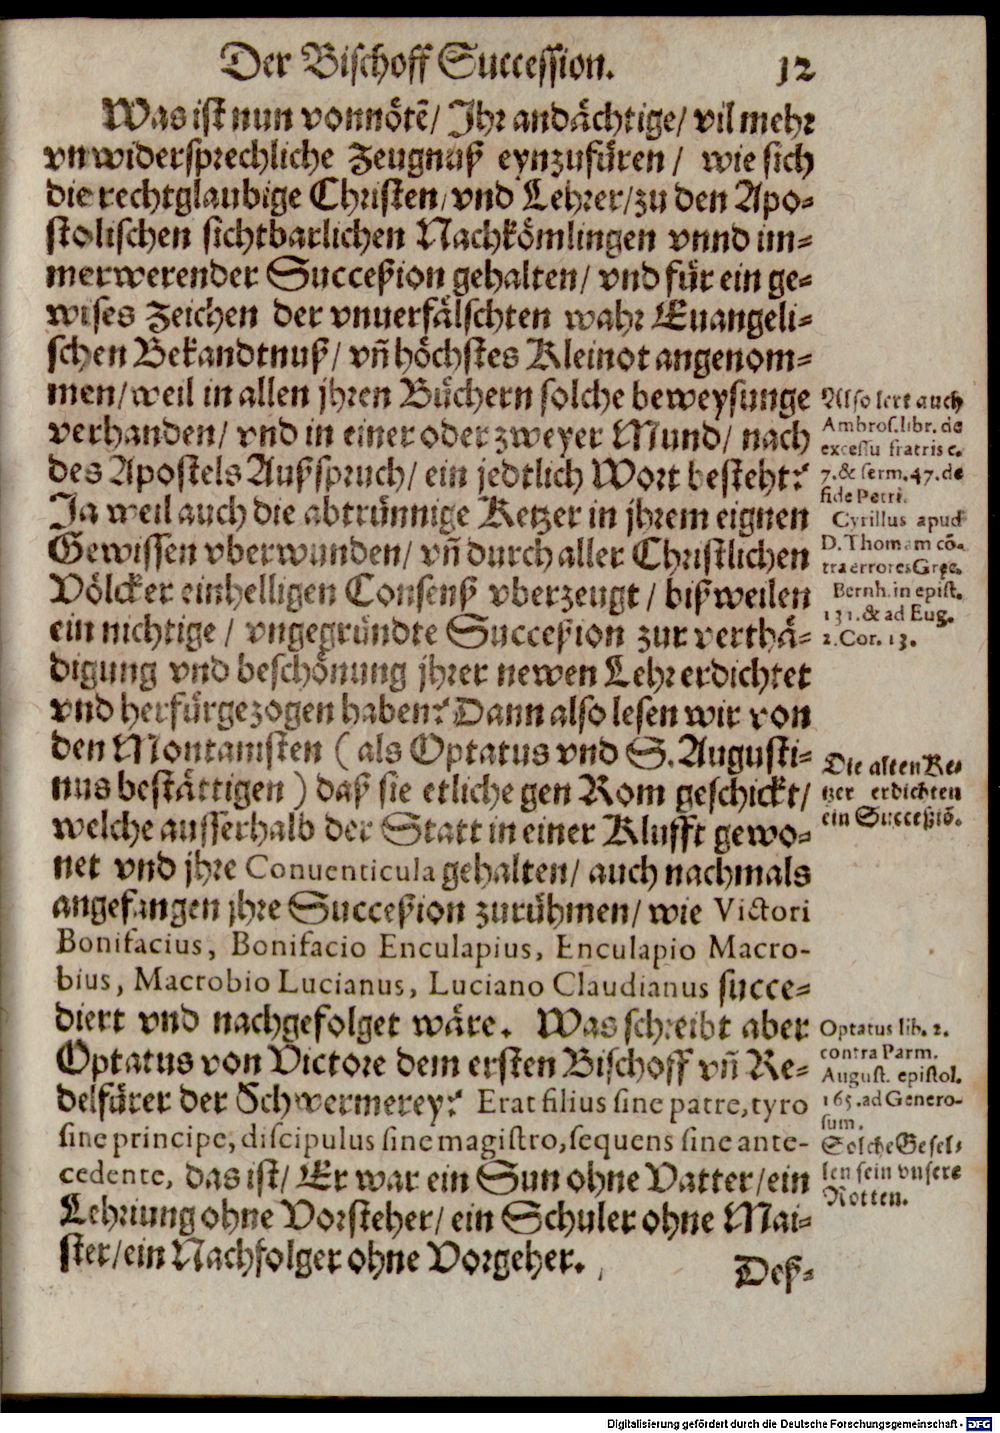 Der Bischoff Succession. 12
Was ist nun vonnötẽ/ Ihr andächtige/ vil mehr
vnwidersprechliche Zeugnuß eynzufüren / wie sich
die rechtglaubige Christen/ vnd Lehrer/ zu den Apo-
stolischen sichtbarlichen Nachkömlingen vnnd im-
merwerender Succeßion gehalten/ vnd für ein ge-
wises Zeichen der vnuerfälschten wahr Euangeli-
schen Bekandtnuß/ vñ höchstes Kleinot angenom-
men/ weil in allen jhren Büchern solche beweysunge
verhanden/ vnd in einer oder zweyer Mund/ nach
des Apostels Außspruch/ ein jedtlich Wort besteht?
Ja weil auch die abtrünnige Ketzer in jhrem eignen
Gewissen vberwunden/ vñ durch aller Christlichen
Völcker einhelligen Consenß vberzeugt / bißweilen
ein nichtige / vngegründte Succeßion zur verthä-
digung vnd beschönung jhrer newen Lehr erdichtet
vnd herfürgezogen haben? Dann also lesen wir von
den Montanisten ( als Optatus vnd S. Augusti-
nus bestättigen ) daß sie etliche gen Rom geschickt/
welche ausserhalb der Statt in einer Klufft gewo-
net vnd jhre Conuenticula gehalten/ auch nachmals
angefangen jhre Succeßion zurühmen/ wie Victori
Bonifacius, Bonifacio Enculapius, Enculapio Macro-
bius, Macrobio Lucianus, Luciano Claudianus succe-
diert vnd nachgefolget wäre. Was schreibt aber
Optatus von Victore dem ersten Bischoff vñ Re-
delfürer der Schwermerey? Erat filius sine patre, tyro
sine principe, discipulus sine magistro, sequens sine ante-
cedente, das ist/ Er war ein Sun ohne Vatter/ ein
Lehriung ohne Vorsteher/ ein Schuler ohne Mai-
ster/ ein Nachfolger ohne Vorgeher.
Deß-
Also lert auch
Ambros. libr. de
excessu fratris c.
7. & serm. 47. de
fide Petri.
Cyrillus apud
D. Thomam cõ-
tra errores Græc.
Bernh. in epist.
131. & ad Eug.
2. Cor. 13.
Die alten Ke-
tzer erdichten
ein Succeßiõ.
Optatus lib. 2.
contra Parm.
August. epistol.
165. ad Genero-
sum.
Solche Gesel-
len sein vnsere
Rotten.
Digitalisierung gefördert durch die Deutsche Forschungsgemeinschaft - DFG